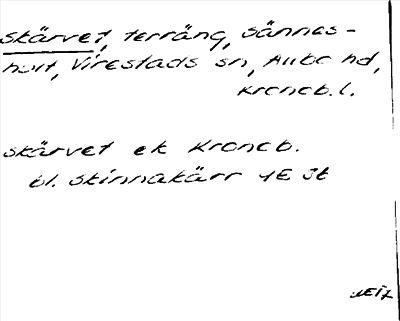 Skärvet, terräng, Sännes-
hult, Virestads sn, Allbo hd,
Kronob. l.
skärvet ek Kronob.
bl. Skinnakärr 4E St